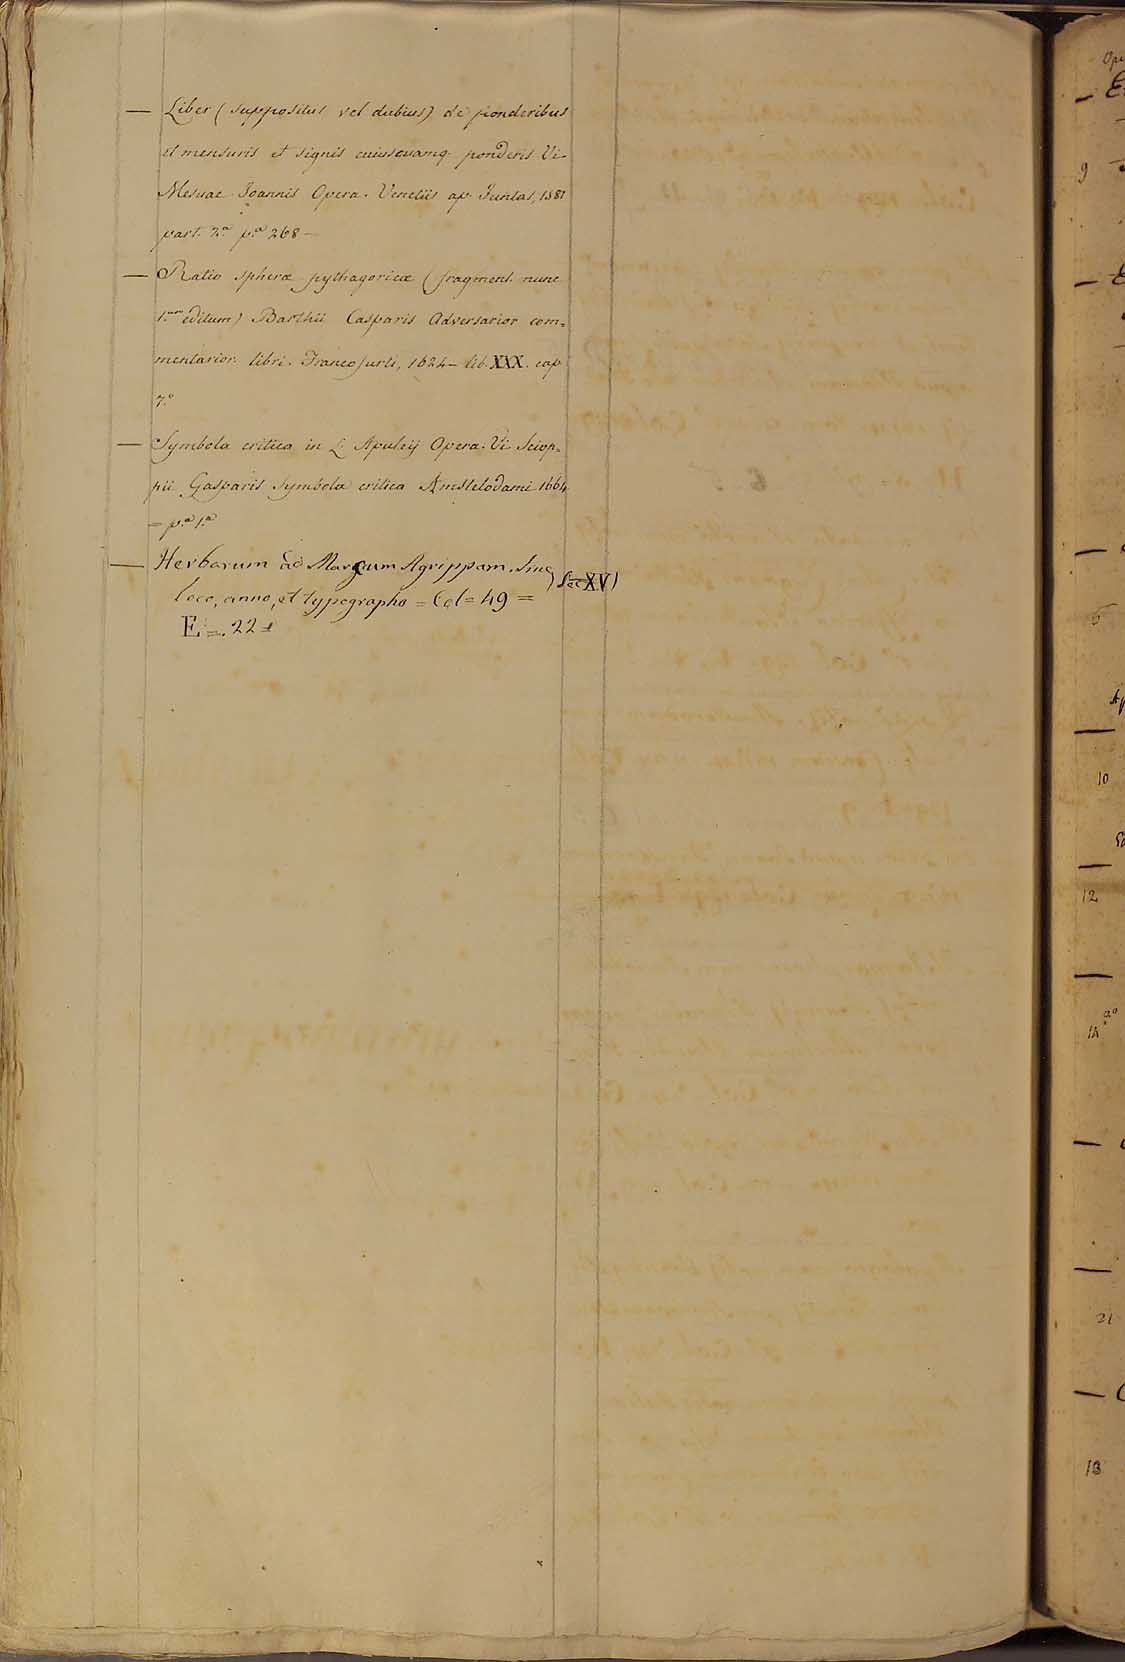 — Liber (suppositus vel dubius) de ponderibus
et mensuris et signis cuiuscumq. ponderis Vi-
Mesuae Joannis Opera. Venetiis ap. Juntas, 1581
part. 2.ª p.ª 268 —
— Ratio spheræ pythagoricæ (fragment. nunc
1.um editum) Barthii Casparis Adversarior com=
mentarior. libri. Francofurti, 1624 — lib. XXX. cap
7.º
— Symbola critica in L. Apuleij Opera. Vi Sciop=
pii Gasparis Symbola critica Amstelodami 1664
= p.ª 1.ª
— Herbarum ad Marcum Agrippam. Sine
loco, anno, et typographo = Col = 49 = ) Sec XV)
E = . 22 =
9
6
10
12
14
21
13